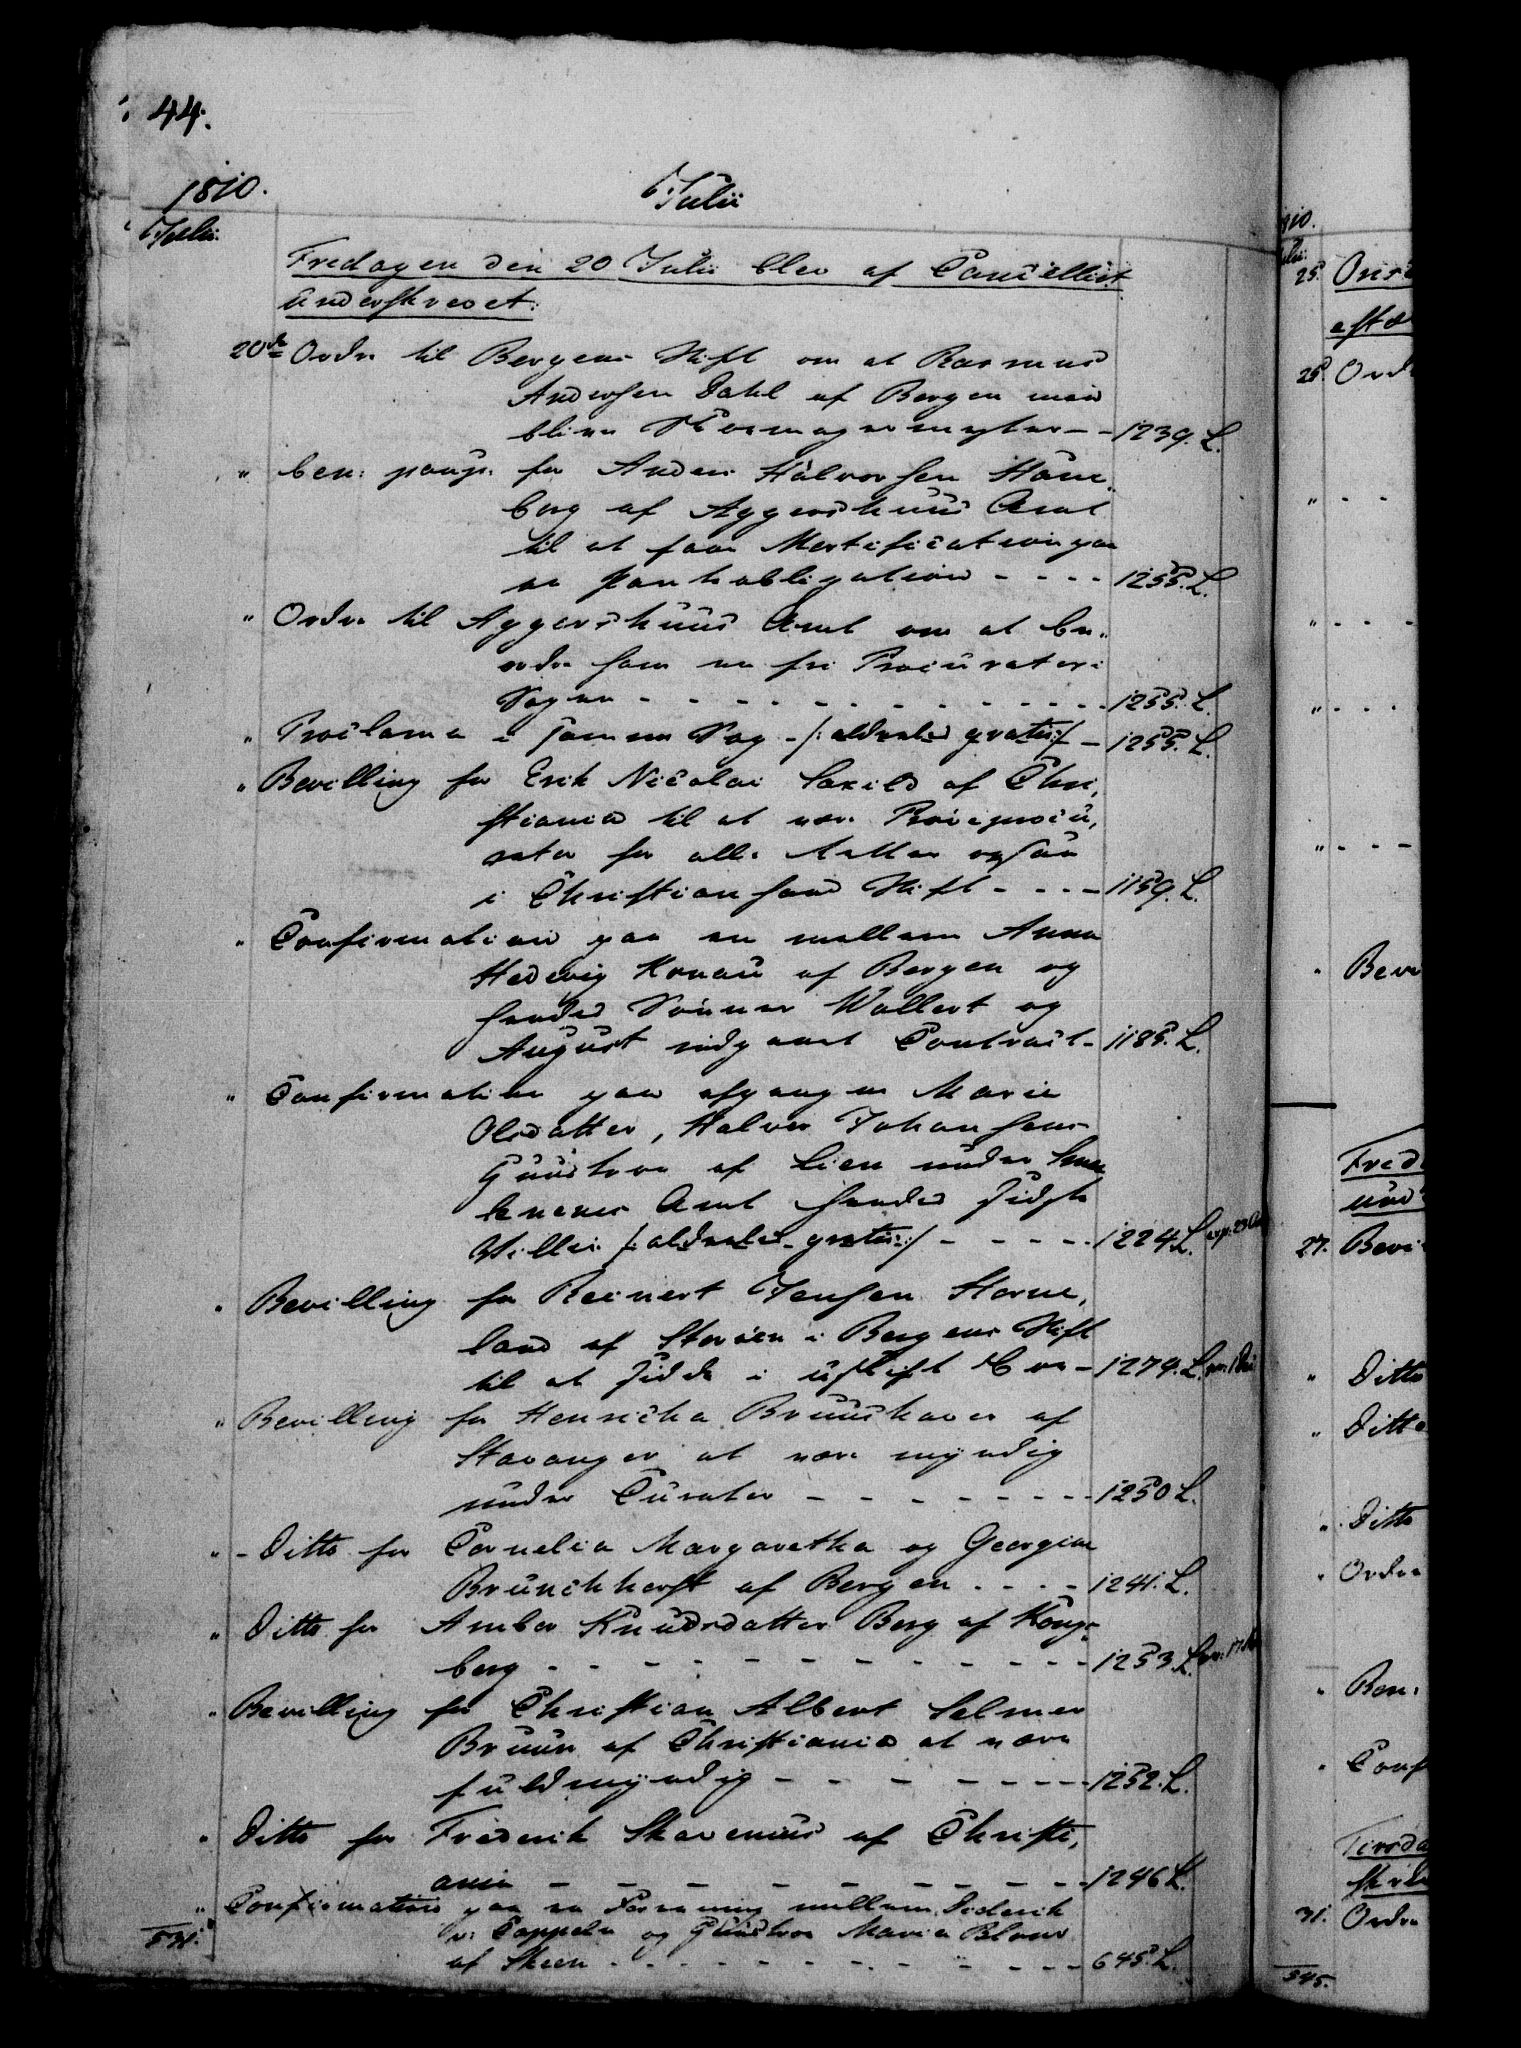 44.
1810.
Julii
Julii.
Fredagen den 20 Julii blev af Cancelliet
underskrevet:
20de Ordre til Bergens Stift om at Rasmus
Andersen Dahl af Bergen maa
blive Skoemagermester - - 1239. L.
" ben: paup: for Anders Halvorsen Houe,
borg af Aggershuus Amt
til at faae Mortification paa
en Pantobligation - - - - 1255. L.
" Ordre til Aggershuus Amt om at be,,
ordre ham en fri Procurator i
Sagen - - - - - - - - - - 1255. L.
" Proclama i samme Sag - /: aldeeles gratis :/ - 1255. L.
" Bevilling for Erik Nicolai Saxild af Chri,
stiania til at være Procu,
rator for alle Retter ogsaa
i Christiansand Stift - - - - 1159. L.
" Confirmation paa en mellem Anna
Hedevig Konau af Bergen og
hendes Sønner Wollert og
August indgaaet Contract - 1185. L.
" Confirmation paa afgangne Marie
Olsdatter, Halvor Johansens
Huustroe af Lien under Smaa
lenenes Amt hendes sidste
Villie /: aldeeles gratis :/ - - - - - 1224. L.
" Bevilling for Reinert Jensen Horne,
land af Storøen i Bergens Stift
til at sidde i uskift Boe - 1279. L.
" Bevilling for Henricha Bruushaver af
Stavanger at være myndig
under Curator - - - - - - - - 1250 L.
" - Ditto for Cornelia Margaretha og Georgine
Brunchhorst af Bergen - - - - 1241. L.
" Ditto for Amber Knudsdatter Berg af Kongs,
berg - - - - - - - - - - - - 1253. L.
" Bevilling for Christian Albert Selmer
Bruun af Christiania at være
fuldmyndig - - - - - - - - 1252. L.
" Ditto for Frederik Skavenius af Christi,
ania - - - - - - - - - - - 1246 L.
" Confirmation paa en Forening mellem Diderik
v: Cappelen og Huustroe Maria Blom
af Skeen - - - - - - - - - - - 645. L.
531.
1810.
Julii:
25.
25. Ord
" - -
" - - -
" - - -
" - - -
" Bev
Fred
und
27. Bevi
" Ditto
" Ditto
" Ditto
" Ordre
" Ben:
" Conf
Tirsda
31. Ordre
545.